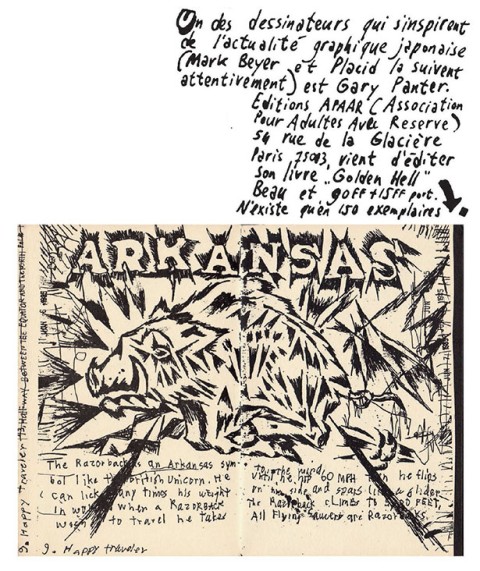 Un des dessinateurs qui s'inspirent
de l'actualité graphique japonaise
(Mark Beyer et Placid la suivent
attentivement) est Gary Panter.
Editions APAAR (Association
Pour Adultes Avec Reserve)
54 rue de la Glacière
Paris 75013, vient d'éditer
son livre "Golden Hell"
Beau et 90FF+15FF port.
N'existe qu'en 150 exemplaires
ARKANSAS
The Razorback is an Arkansas sym-
bol like the British Unicorn. He
can lick many times his weight
in when a RAZORBACK
to travel he Takes
To the wind
until he hit 60 MPH he flips
on his side and soars like a glider
The Razorback climbs to FEET,
All Flying Saucers are Razorbacks.
9. Happy traveler
9. Happy traveler